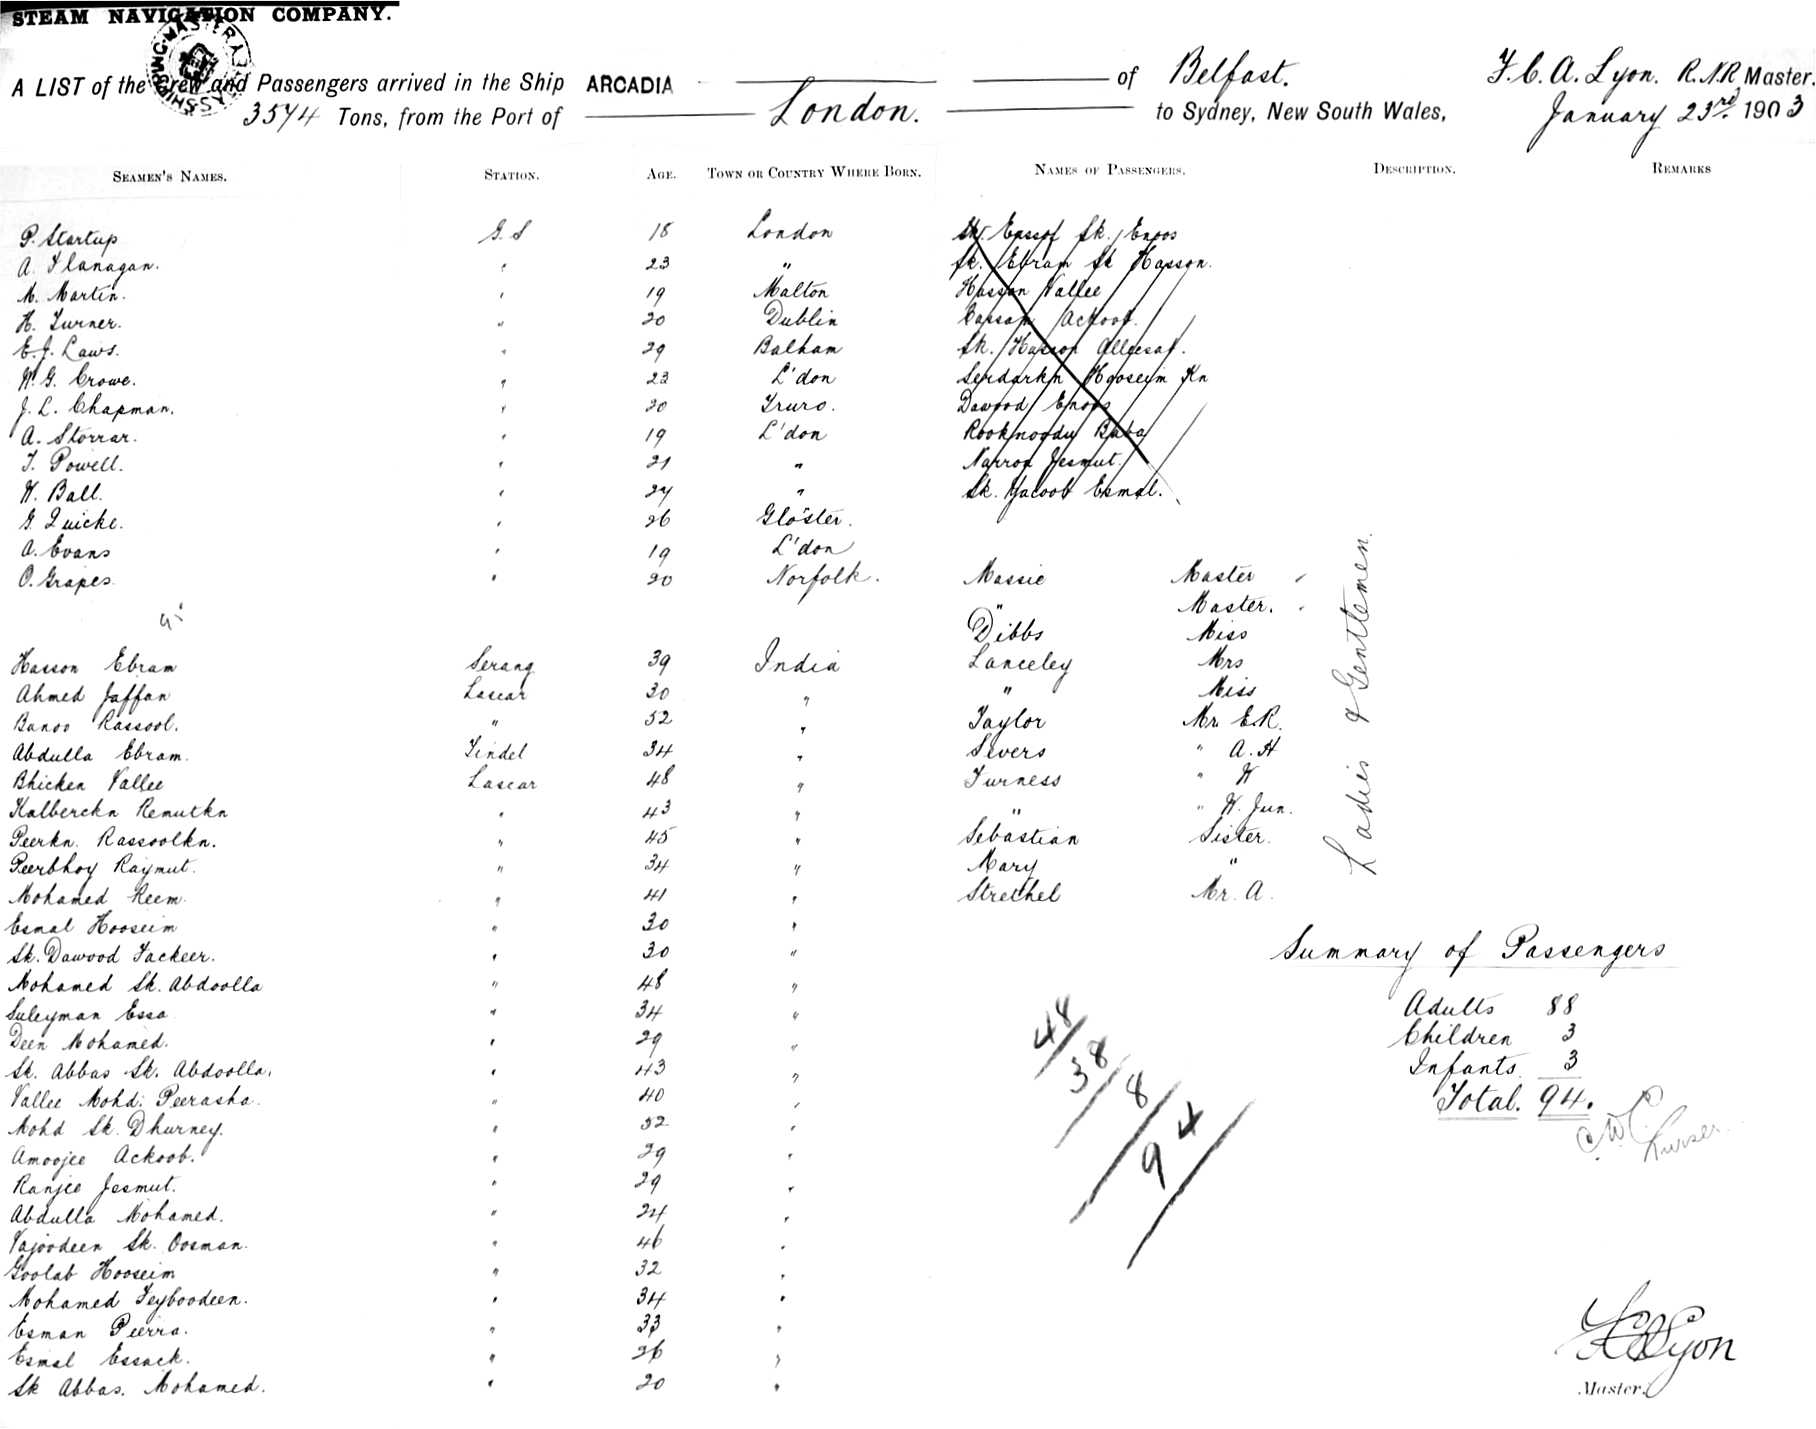 STEAM NAVIGATION COMPANY.
A LIST of the Crew and Passengers arrived in the Ship ARCADIA of Belfast. F. C. A. Lyon. R.N.R Master.
3574 Tons, from the Port of London. to Sydney, New South Wales, January 23rd. 1903
SEAMEN'S NAMES. STATION. AGE. TOWN OR COUNTRY WHERE BORN. NAMES OF PASSENGERS. DESCRIPTION. REMARKS
P. Startup G.S 18 London Sk. Eassof Sk. Enoos
A. Flanagan. " 23 " Sk. Ebram Sk Hasson.
M. Martin. " 19 Malton Hasson Vallee
H. Turner. " 20 Dublin Cassom Ackoob.
E.J. Laws. " 29 Balham Sk. Hasson Alleesaf.
W.G. Crowe. " 23 L'don Serdarkn Hooseim Kn
J.L. Chapman. " 20 Truro. Dawood Enoos
A. Storrar. " 19 L'don Rooknoodu Baba
T. Powell. " 21 " Narron Jesmut.
W. Ball. " 24 " Sk. Yacoob Esmal.
G. Quicke. " 26 Glo'ster.
A. Evans " 19 L'don
O. Grapes. " 20 Norfolk. Massie Master
" Master.
Dibbs Miss
Hasson Ebram Serang 39 India Lanceley Mrs
Ahmed Jaffan Lascar 30 " " Miss
Banoo Rassool. " 52 " Taylor Mr E.R.
Abdulla Ebram. Tindel 34 " Sivers " A.H
Bhicken Vallee Lascar 48 " Furness " W
Kalberckn Remutkn " 43 " " " W. Jun.
Peerkn. Rassoolkn. " 45 " Sebastian Sister.
Peerbhoy Raymut. " 34 " Mary "
Mohamed Reem. " 41 " Strethel Mr. A.
Ladies & Gentlemen.
Esmal Hooseim " 30 "
Sk. Dawood Fackeer. " 30 "
Mohamed Sk. Abdoolla " 48 "
Suleyman Essa " 34 "
Deen Mohamed. " 29 "
Sk. Abbas Sk. Abdoolla. " 43 "
Vallee Mohd: Peerasha. " 40 "
Mohd Sk. Dhurney. " 52 "
Amoojee Ackoob. " 29 "
Ranjee Jesmut. " 29 "
Abdulla Mohamed. " 24 "
Vajoodeen Sk. Oosman. " 46 "
Goolab Hooseim " 32 "
Mohamed Teyboodeen. " 34 "
Esman Peerra. " 33 "
Esmal Essack. " 26 "
Sk Abbas. Mohamed. " 20 "
Summary of Passengers
Adults 88
Children 3
Infants 3
Total. 94.
Purser.
48
38
8
94
F C A Lyon
Master.